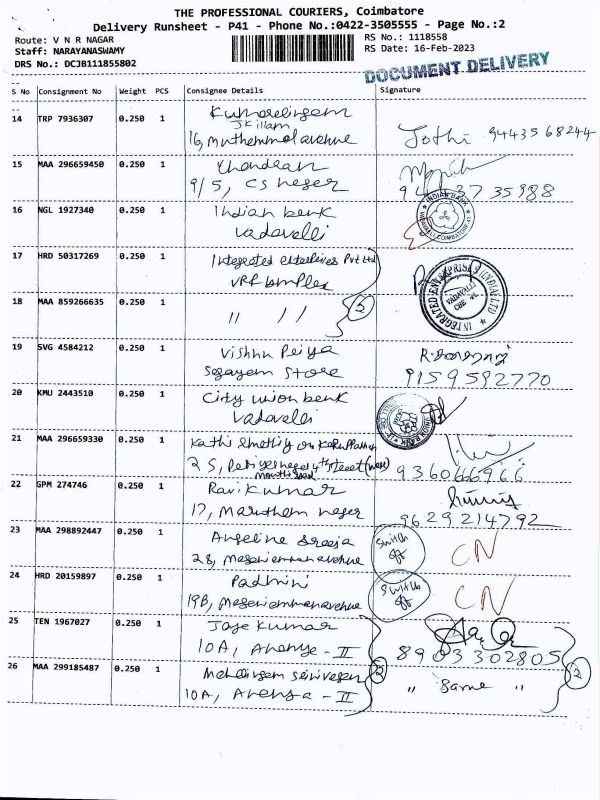 THE PROFESSIONAL COURIERS, Coimbatore
Delivery Runsheet - P41 - Phone No.:0422-3505555 - Page No.:2
Route: V N R NAGAR
RS No.: 1118558
Staff: NARAYANASWAMY
RS Date: 16-Feb-2023
DRS No.: DCJB111855802
DOCUMENT DELIVERY
S No Consignment No Weight PCS Consignee Details Signature
14 TRP 7936307 0.250 1 Kumarelingam
Jothi 9443568244
15 MAA 296659450 0.250 1 Chandran
9/5, CS neger
16 NGL 1927340 0.250 1 Indian benk
Vadavelli
INDIAN BANK
17 HRD 50317269 0.250 1 Integrated Pvt Ltd
VRF Complex
INTEGRATED ENTERPRISES INDIA LTD
VADAVALLI
18 MAA 859266635 0.250 1 " "
2
19 SVG 4584212 0.250 1 Vishnu Peiya
Store 9159592770
20 KMU 2443510 0.250 1 City union benk
Vadavelli
21 MAA 296659330 0.250 1 Kathi
2 5, 4th street (west)
9360666966
22 GPM 274746 0.250 1 Ravi Kumar
17, Marutham neger 9629214792
23 MAA 298892447 0.250 1 Angeline Sreeja
28,
Switch off CN
24 HRD 20159897 0.250 1 Padmini
19B,
Switch off CN
25 TEN 1967027 0.250 1 Jaye Kumar
10A, - II 8903302805
26 MAA 299185487 0.250 1
10A, - II " Same "
2